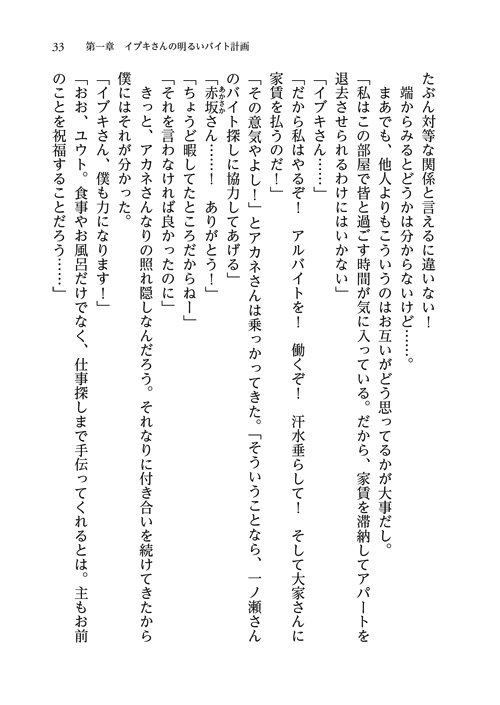 33　第一章　イブキさんの明るいバイト計画
たぶん対等な関係と言えるに違いない！
　端からみるとどうかは分からないけど……。
　まあでも、他人よりもこういうのはお互いがどう思ってるかが大事だし。
「私はこの部屋で皆と過ごす時間が気に入っている。だから、家賃を滞納してアパートを
退去させられるわけにはいかない」
「イブキさん……」
「だから私はやるぞ！　アルバイトを！　働くぞ！　汗水垂らして！　そして大家さんに
家賃を払うのだ！」
「その意気やよし！」とアカネさんは乗っかってきた。「そういうことなら、一ノ瀬さん
のバイト探しに協力してあげる」
「赤坂さん……！　ありがとう！」
あかさか
「ちょうど暇してたところだからねー」
「それを言わなければ良かったのに」
　きっと、アカネさんなりの照れ隠しなんだろう。それなりに付き合いを続けてきたから
僕にはそれが分かった。
「イブキさん、僕も力になります！」
「おお、ユウト。食事やお風呂だけでなく、仕事探しまで手伝ってくれるとは。主もお前
のことを祝福することだろう……」